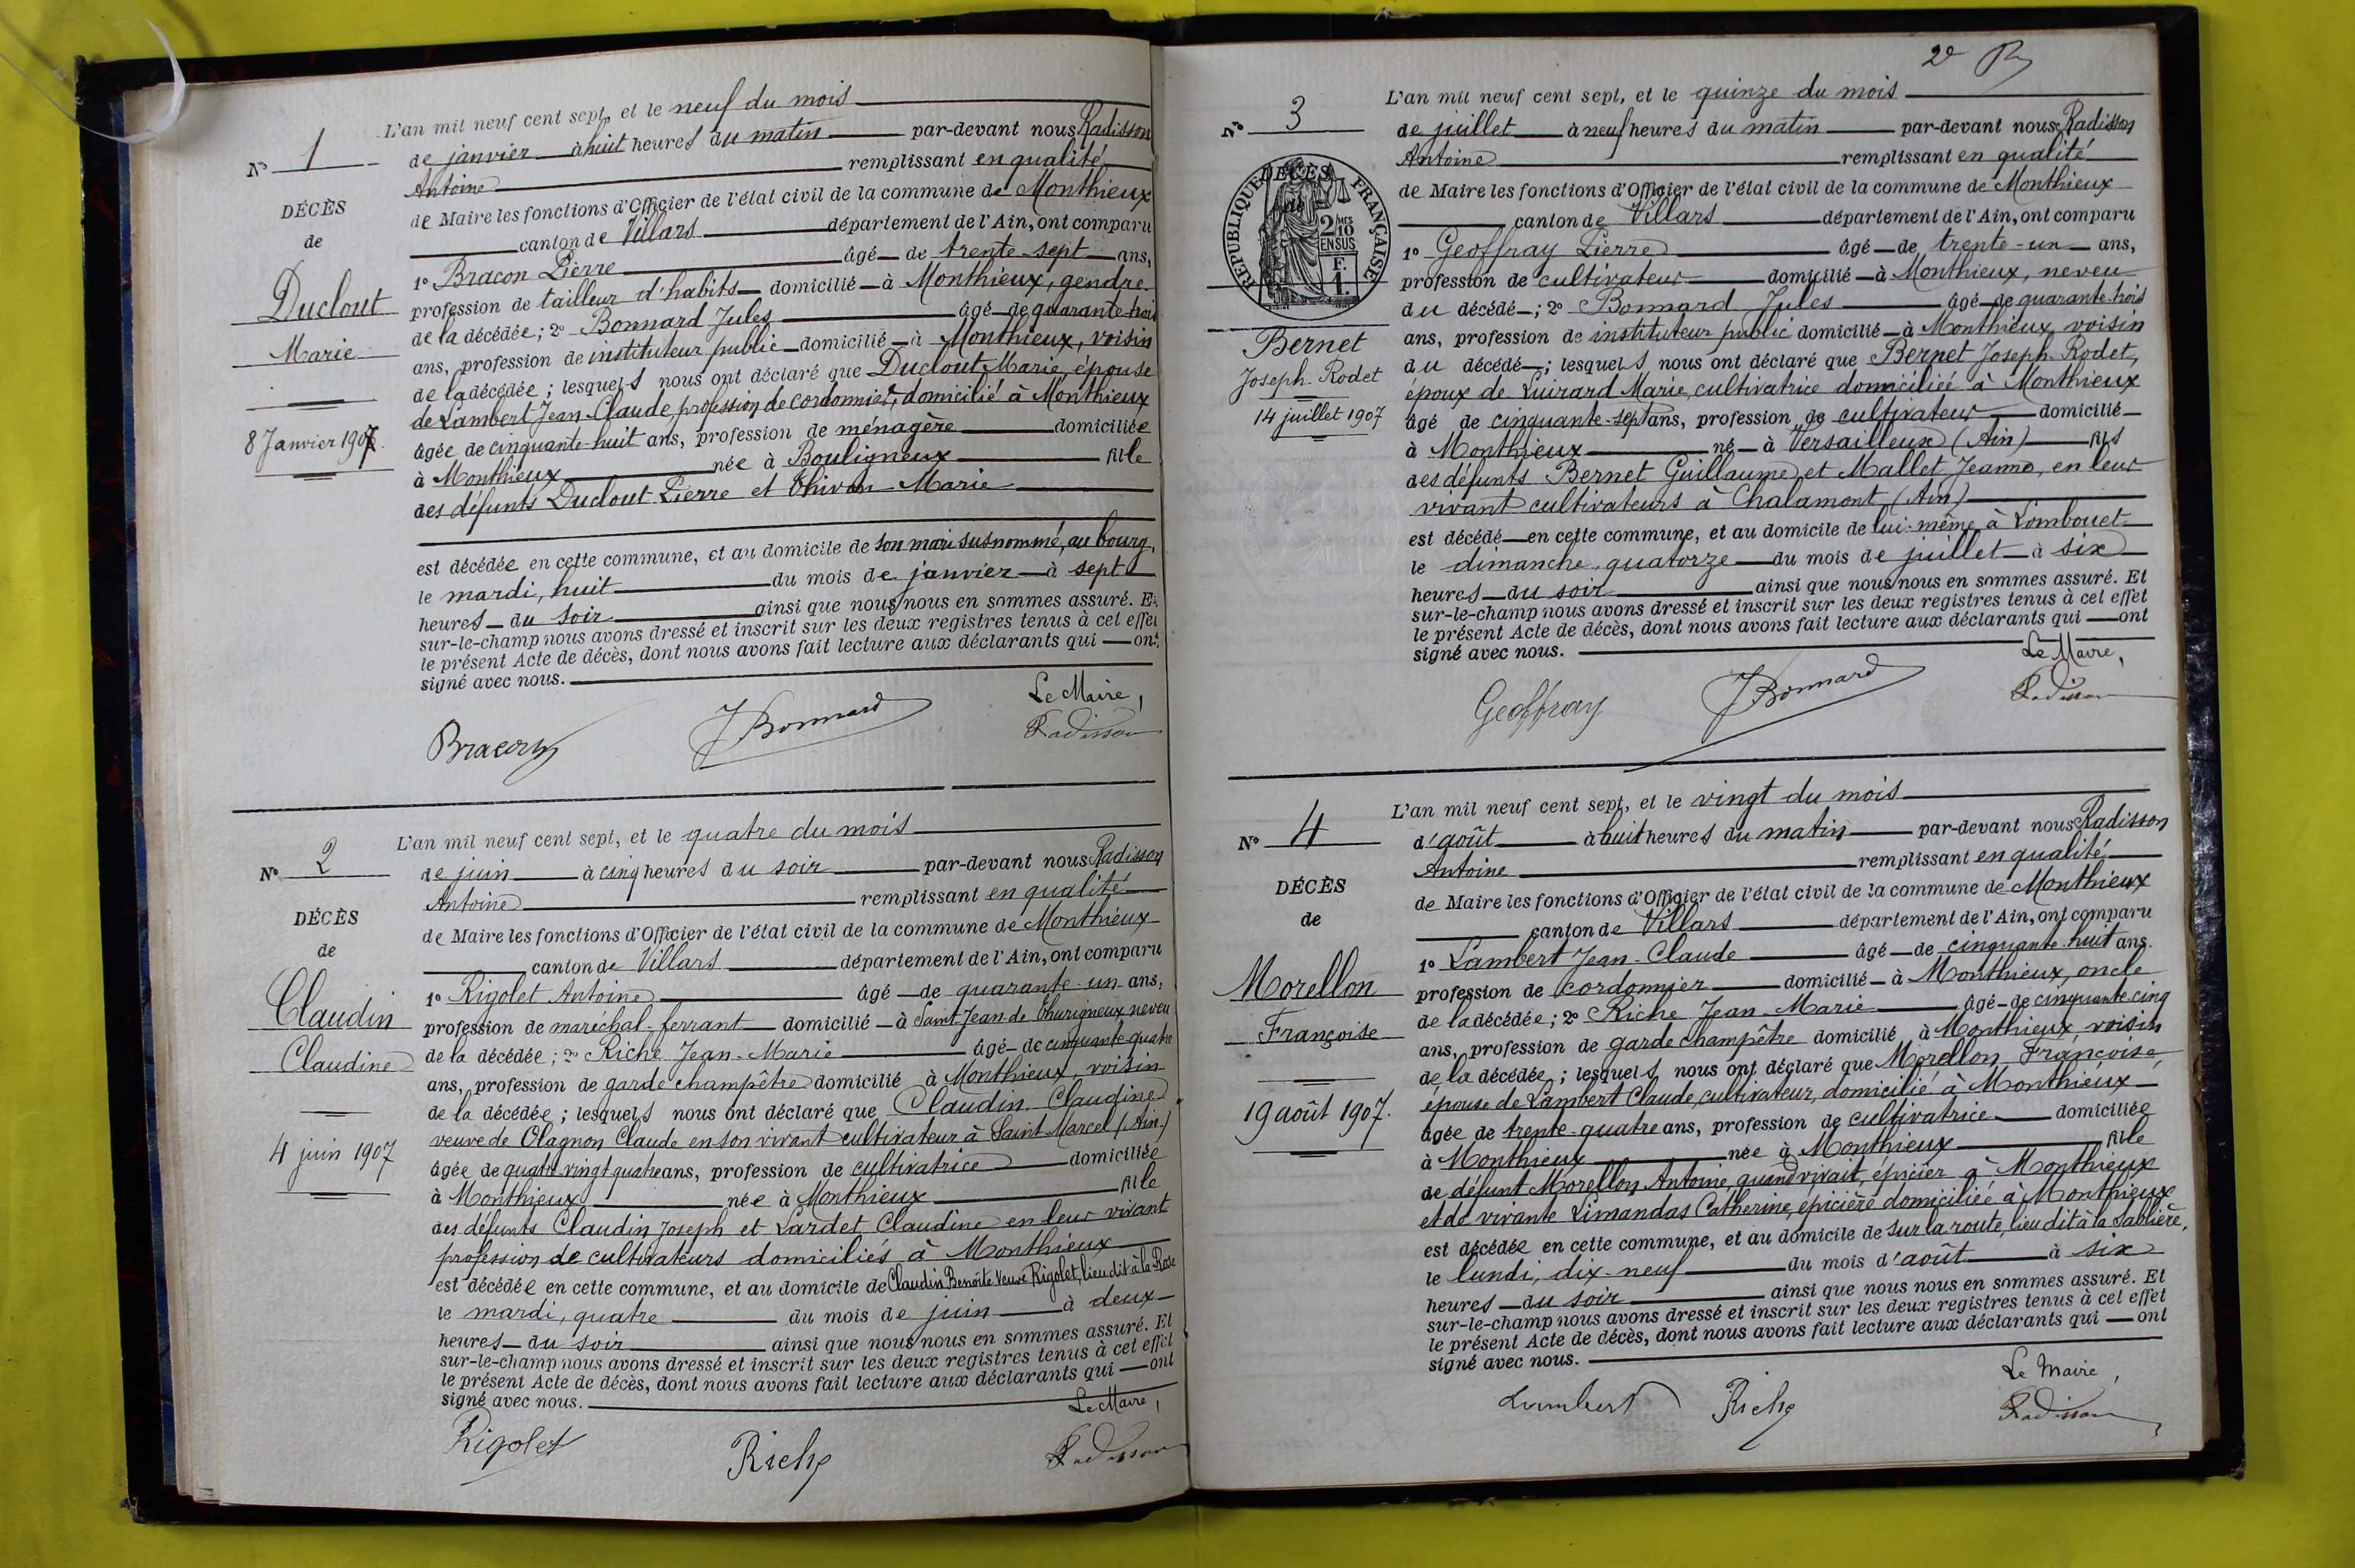 N° 1
DÉCÈS
de
Duclout
Marie
8 Janvier 1907.
L'an mil neuf cent sept, et le neuf du mois
de janvier à huit heures du matin par-devant nous Radisson
Antoine remplissant en qualité
de Maire les fonctions d'Officier de l'état civil de la commune de Monthieux
canton de Villars département de l'Ain, ont comparu
1° Bracon Pierre âgé de trente-sept ans,
profession de tailleur d'habits domicilié à Monthieux, gendre
de la décédée ; 2° Bonnard Jules âgé de quarante-trois
ans, profession de instituteur public domicilié à Monthieux, voisin
de la décédée ; lesquels nous ont déclaré que Duclout Marie, épouse
de Lambert Jean-Claude profession de cordonnier, domicilié à Monthieux
âgée de cinquante-huit ans, profession de ménagère domiciliée
à Monthieux née à Bouligneux fille
des défunts Duclout Pierre et Chivon Marie
est décédée en cette commune, et au domicile de son mari susnommé, au bourg,
le mardi, huit du mois de janvier à sept
heures du soir ainsi que nous nous en sommes assuré. Et
sur-le-champ nous avons dressé et inscrit sur les deux registres tenus à cet effet
le présent Acte de décès, dont nous avons fait lecture aux déclarants qui ont
signé avec nous.
Le Maire,
Bracon JBonnard Radisson
N° 2
DÉCÈS
de
Claudin
Claudine
4 juin 1907
L'an mil neuf cent sept, et le quatre du mois
de juin à cinq heures du soir par-devant nous Radisson
Antoine remplissant en qualité
de Maire les fonctions d'Officier de l'état civil de la commune de Monthieux
canton de Villars département de l'Ain, ont comparu
1° Rigolet Antoine âgé de quarante-un ans,
profession de maréchal-ferrant domicilié à Saint Jean de Thurigneux neveu
de la décédée ; 2° Riche Jean-Marie âgé de cinquante-quatre
ans, profession de garde champêtre domicilié à Monthieux, voisin
de la décédée ; lesquels nous ont déclaré que Claudin Claudine
veuve de Olagnon Claude en son vivant cultivateur à Saint Marcel (Ain)
âgée de quatre vingt quatre ans, profession de cultivatrice domiciliée
à Monthieux née à Monthieux fille
des défunts Claudin Joseph et Lardet Claudine en leur vivant
profession de cultivateurs domiciliés à Monthieux
est décédée en cette commune, et au domicile de Claudin Benoîte veuve Rigolet, lieu dit à la Rose
le mardi, quatre du mois de juin à deux
heures du soir ainsi que nous nous en sommes assuré. Et
sur-le-champ nous avons dressé et inscrit sur les deux registres tenus à cet effet
le présent Acte de décès, dont nous avons fait lecture aux déclarants qui ont
signé avec nous.
Le Maire,
Rigolet Riche Radisson
2e
N° 3
RÉPUBLIQUE FRANÇAISE
DÉCÈS
de
2 MES
10
EN SUS
F.
1.
Bernet
Joseph-Rodet
14 juillet 1907
L'an mil neuf cent sept, et le quinze du mois
de juillet à neuf heures du matin par-devant nous Radisson
Antoine remplissant en qualité
de Maire les fonctions d'Officier de l'état civil de la commune de Monthieux
canton de Villars département de l'Ain, ont comparu
1° Geoffray Pierre âgé de trente-un ans,
profession de cultivateur domicilié à Monthieux, neveu
du décédé ; 2° Bonnard Jules âgé de quarante-trois
ans, profession de instituteur public domicilié à Monthieux voisin
du décédé ; lesquels nous ont déclaré que Bernet Joseph-Rodet,
époux de Luirard Marie, cultivatrice domiciliée à Monthieux
âgé de cinquante-sept ans, profession de cultivateur domicilié
à Monthieux né à Versailleux (Ain) fils
des défunts Bernet Guillaume et Mallet Jeanne, en leur
vivant cultivateurs à Chalamont (Ain)
est décédé en cette commune, et au domicile de lui-même à Limbouet
le dimanche, quatorze du mois de juillet à six
heures du soir ainsi que nous nous en sommes assuré. Et
sur-le-champ nous avons dressé et inscrit sur les deux registres tenus à cet effet
le présent Acte de décès, dont nous avons fait lecture aux déclarants qui ont
signé avec nous.
Le Maire,
Geoffray JBonnard Radisson
N° 4
DÉCÈS
de
Morellon
Françoise
19 août 1907.
L'an mil neuf cent sept, et le vingt du mois
d'août à huit heures du matin par-devant nous Radisson
Antoine remplissant en qualité
de Maire les fonctions d'Officier de l'état civil de la commune de Monthieux
canton de Villars département de l'Ain, ont comparu
1° Lambert Jean-Claude âgé de cinquante-huit ans.
profession de cordonnier domicilié à Monthieux, oncle
de la décédée ; 2° Riche Jean-Marie âgé de cinquante cinq
ans, profession de garde champêtre domicilié à Monthieux voisin
de la décédée ; lesquels nous ont déclaré que Morellon Françoise
épouse de Lambert Claude, cultivateur, domicilié à Monthieux
âgée de trente-quatre ans, profession de cultivatrice domiciliée
à Monthieux née à Monthieux fille
de défunt Morellon Antoine, quand vivait, épicier à Monthieux
et de vivante Limandas Catherine, épicière domiciliée à Monthieux
est décédée en cette commune, et au domicile de sur la route, lieu dit à la Sablière,
le lundi, dix-neuf du mois d'août à six
heures du soir ainsi que nous nous en sommes assuré. Et
sur-le-champ nous avons dressé et inscrit sur les deux registres tenus à cet effet
le présent Acte de décès, dont nous avons fait lecture aux déclarants qui ont
signé avec nous.
Le Maire,
Lambert Riche Radisson